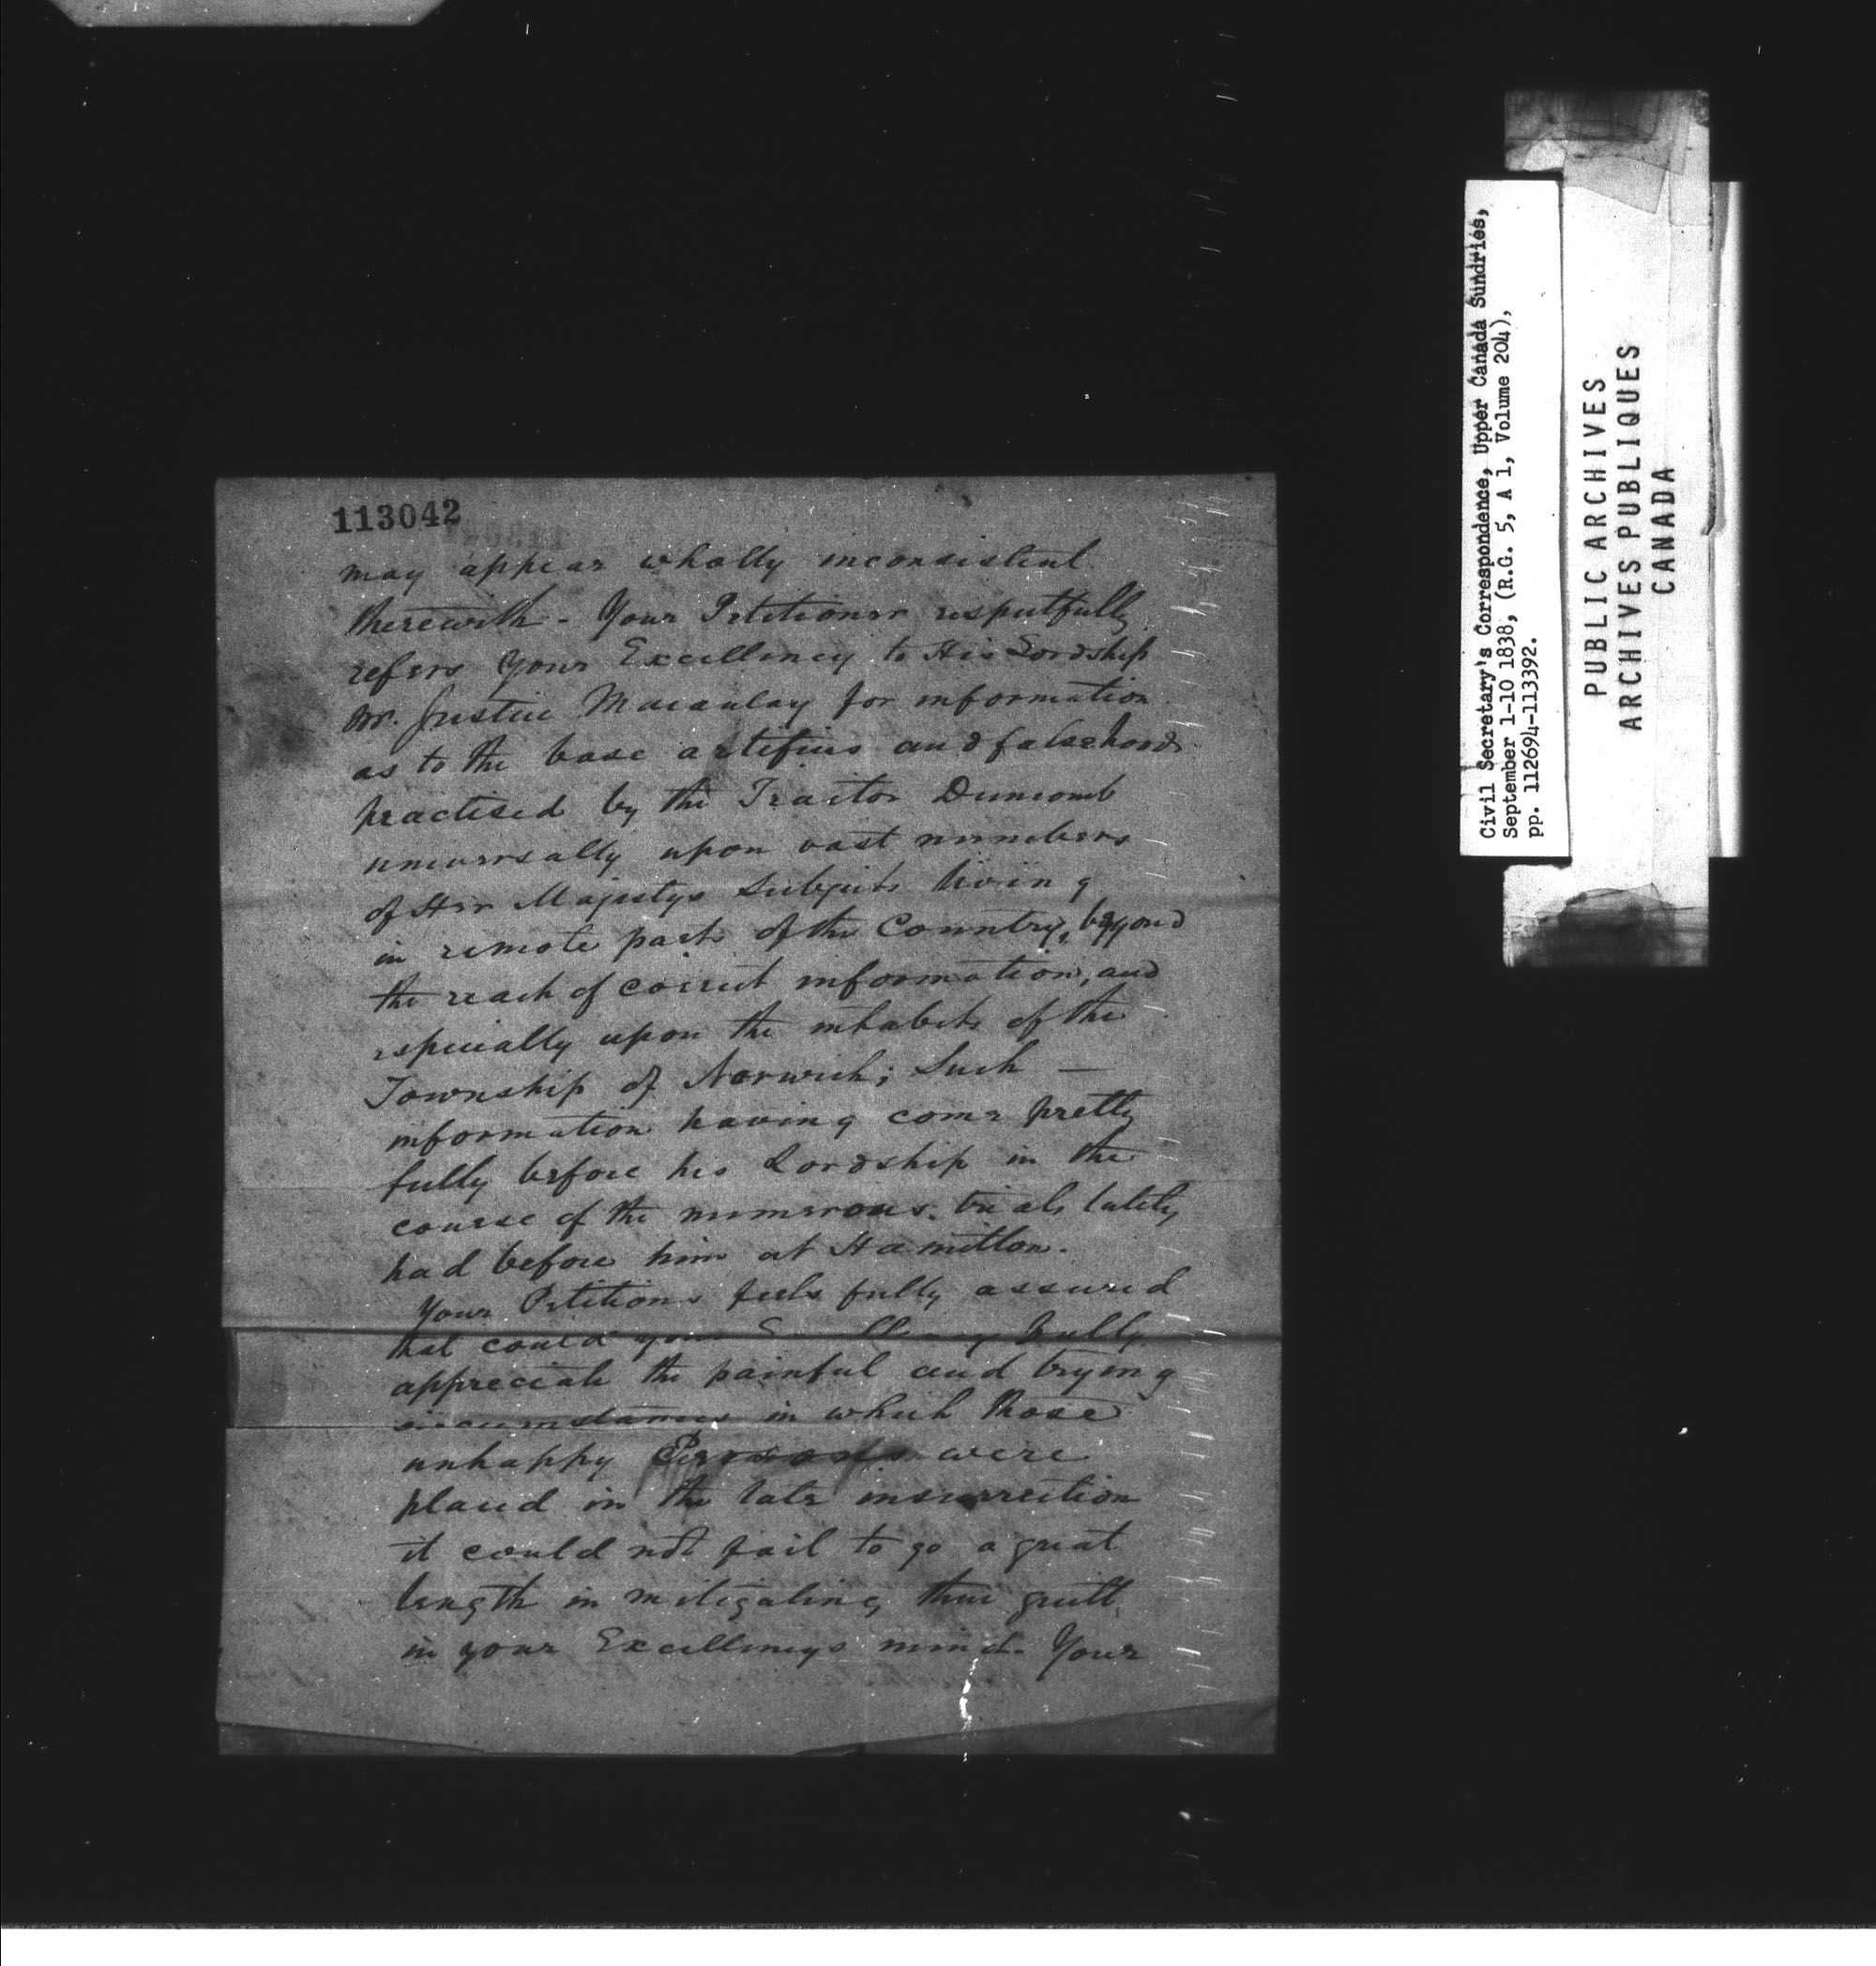 113042
may appear wholly inconsistent
therewith - Your Petitioner respectfully
refers Your Excellency to His Lordship
Mr. Justice Macaulay for information
as to the base artifices and falsehoods
practised by the Traitor Duncomb
universally upon vast numbers
of Her Majestys Subjects living
in remote parts of the Country, beyond
the reach of correct information, and
especially upon the inhabits of the
Township of Norwich; Such —
information having come pretty
fully before his Lordship in the
course of the numerous trials lately
had before him at Hamilton.
Your Petitioner feels fully assured
that could your Excellency fully
appreciate the painful and trying
circumstances in which those
unhappy Persons were
placed in the late insurrection
it could not fail to go a great
length in mitigating their guilt
in your Excellencys mind. Your
Civil Secretary's Correspondence, Upper Canada Sundries,
September 1-10 1838, (R.G. 5, A 1, Volume 204),
pp. 112694-113392.
PUBLIC ARCHIVES
ARCHIVES PUBLIQUES
CANADA